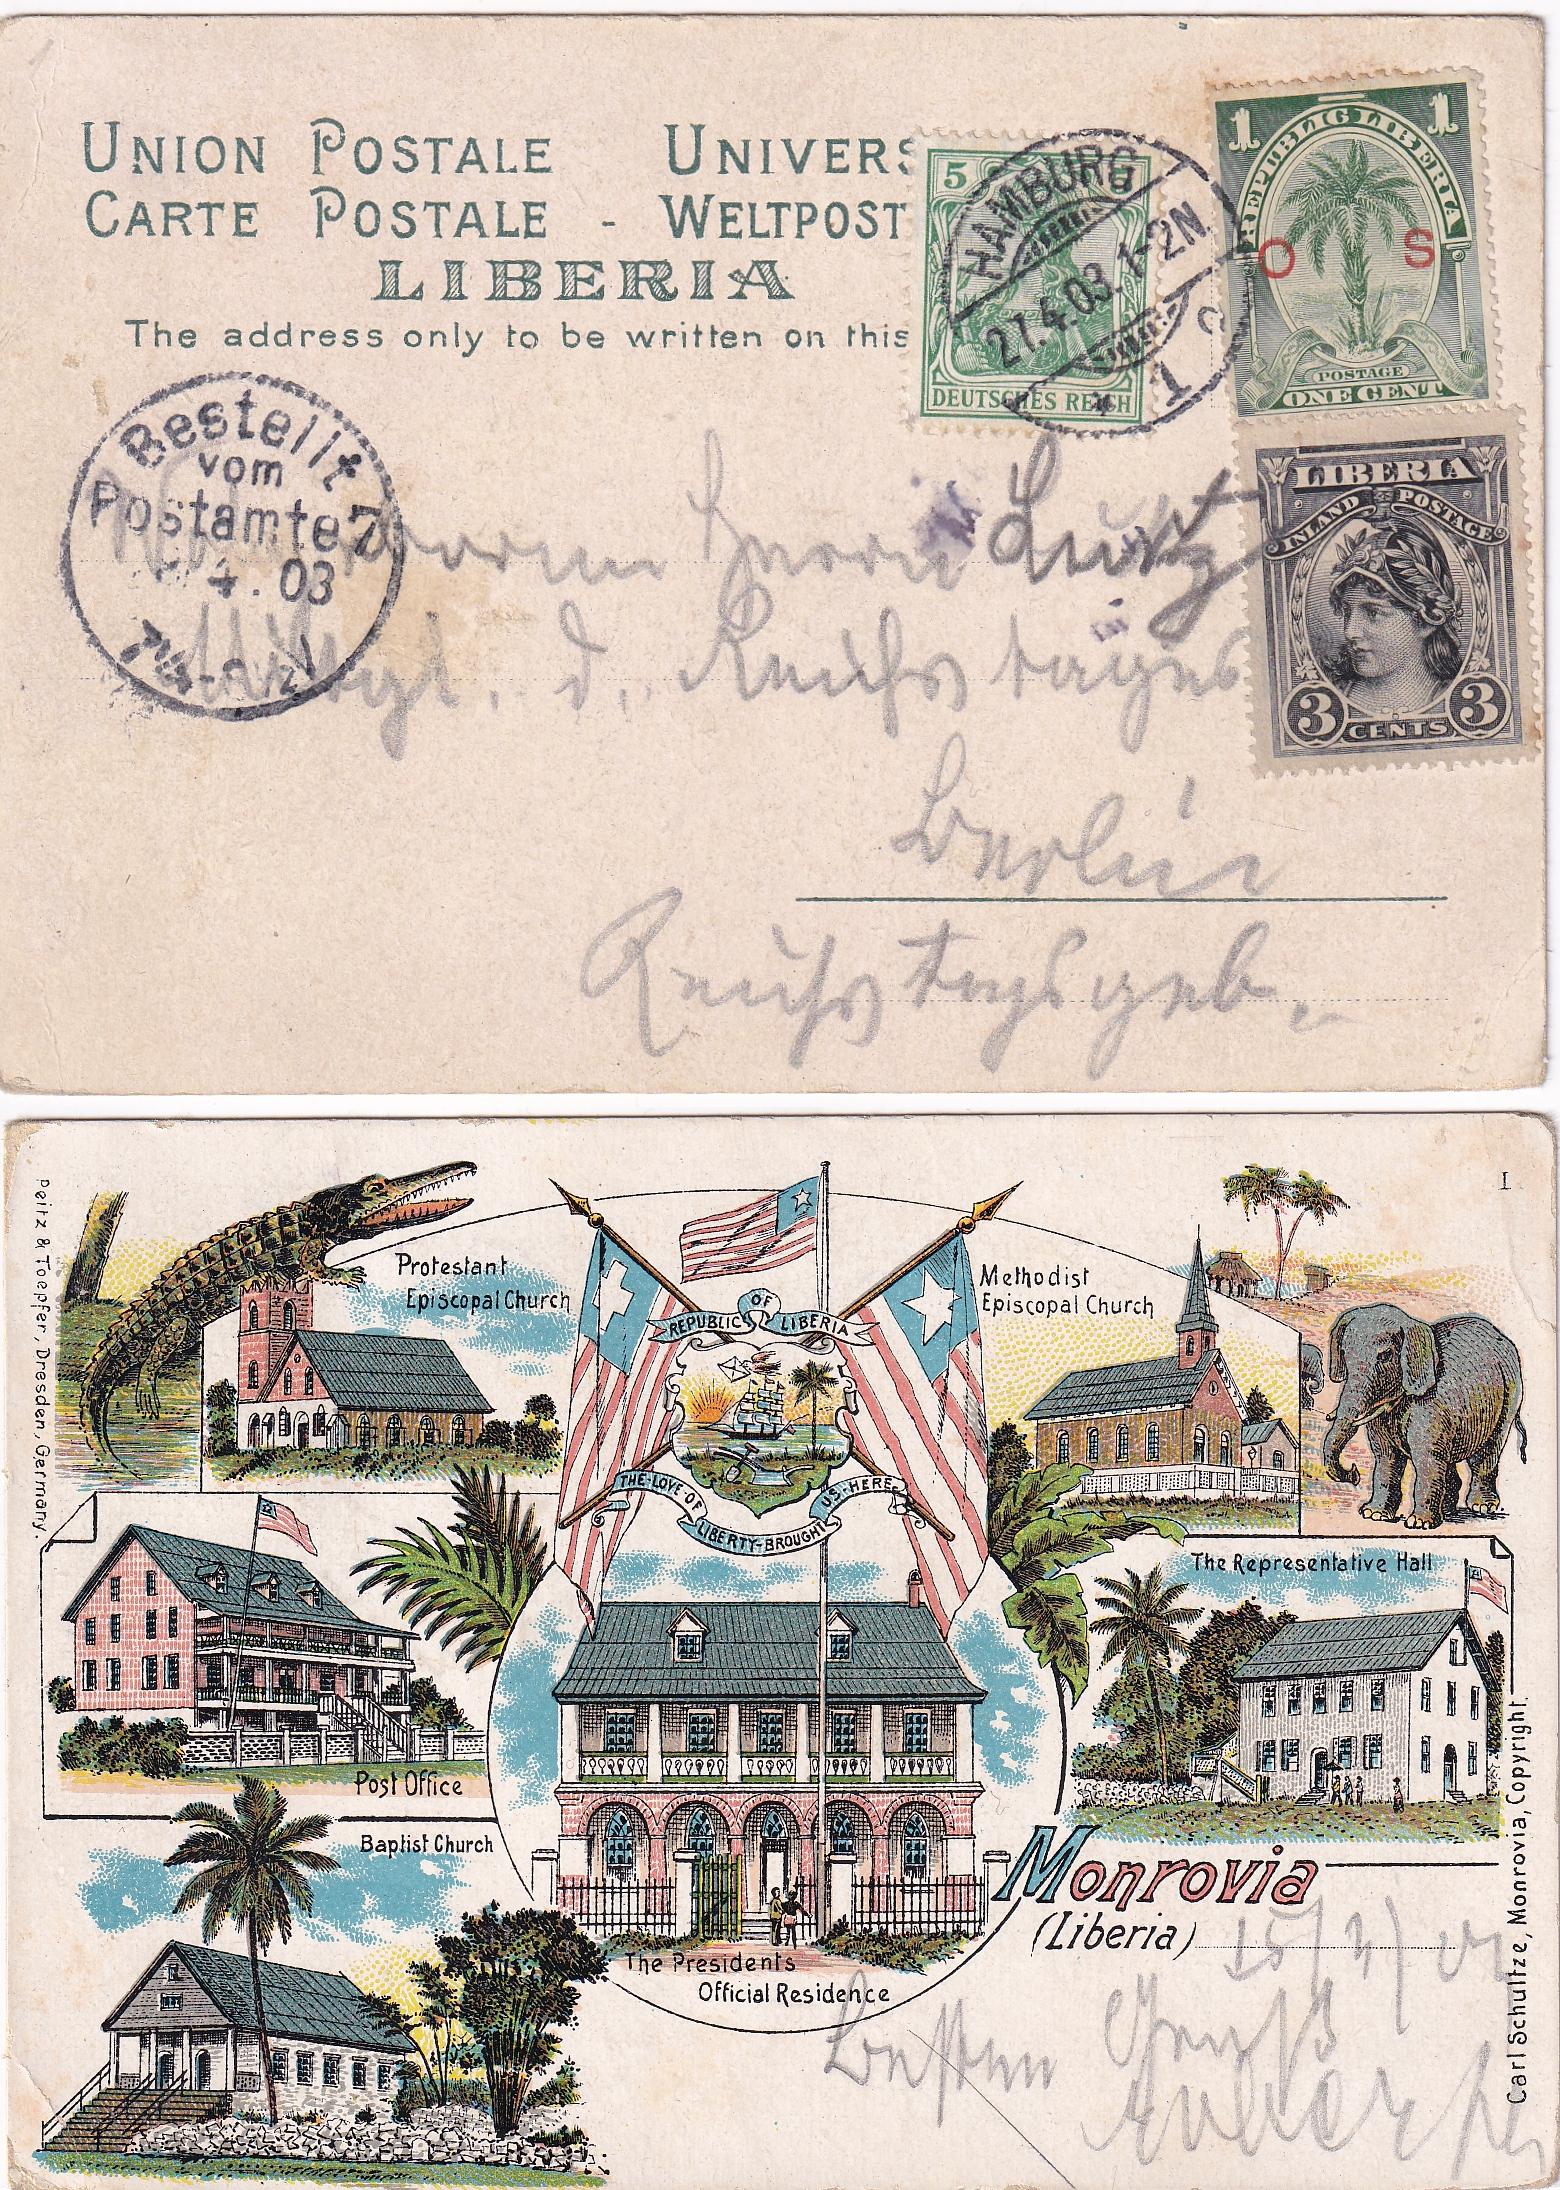 UNION POSTALE UNIVERS
CARTE POSTALE - WELTPOST
LIBERIA
The address only to be written on this
5
DEUTSCHES REICH
HAMBURG
21.4.03. 1-2N
* 1 c
1 1
REPUBLIC LIBERIA
O S
POSTAGE
ONE CENT
LIBERIA
INLAND POSTAGE
3 3
CENTS
Bestellt
vom
Postamte 7
4.03
Herrn Lurz
Mitgl. d. Reichstages
Berlin
Reichstagsgeb.
Peitz & Toepfer, Dresden, Germany.
I
Protestant
Episcopal Church
REPUBLIC OF LIBERIA
THE-LOVE OF
LIBERTY-BROUGHT
US-HERE
Methodist
Episcopal Church
The Representative Hall
Post Office
Baptist Church
The Presidents
Official Residence
Monrovia
(Liberia)
Besten Gruß
Carl Schultze, Monrovia, Copyright.